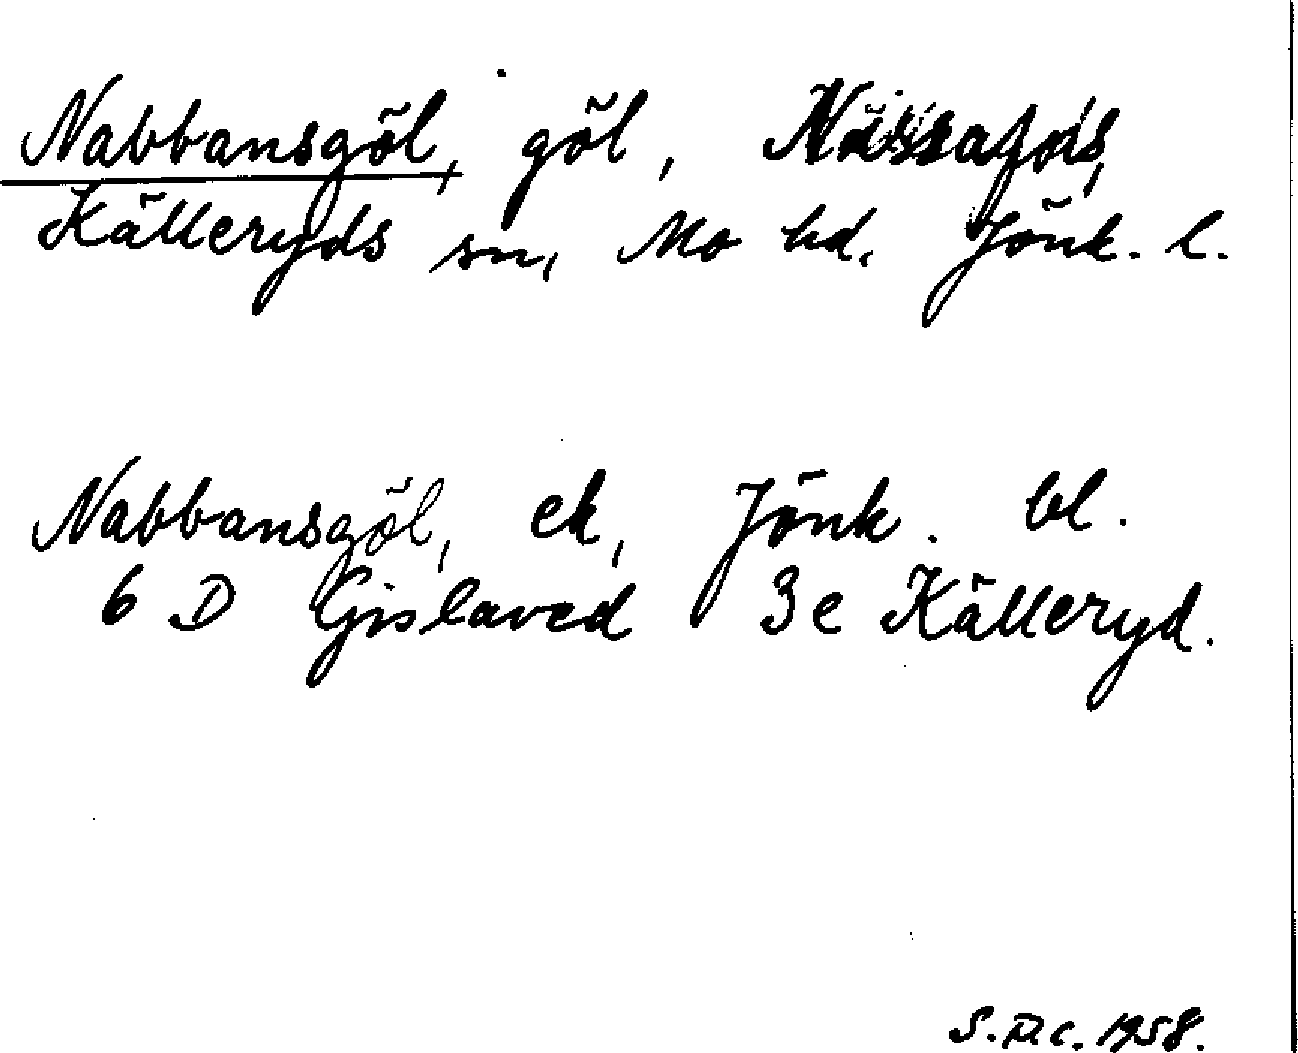 Nabbansgöl, göl,
Källeryds sn, Mo hd. Jönk. l.
Nabbansgöl, ek, Jönk. bl.
6 D Gislaved 3e Källeryd.
1958.